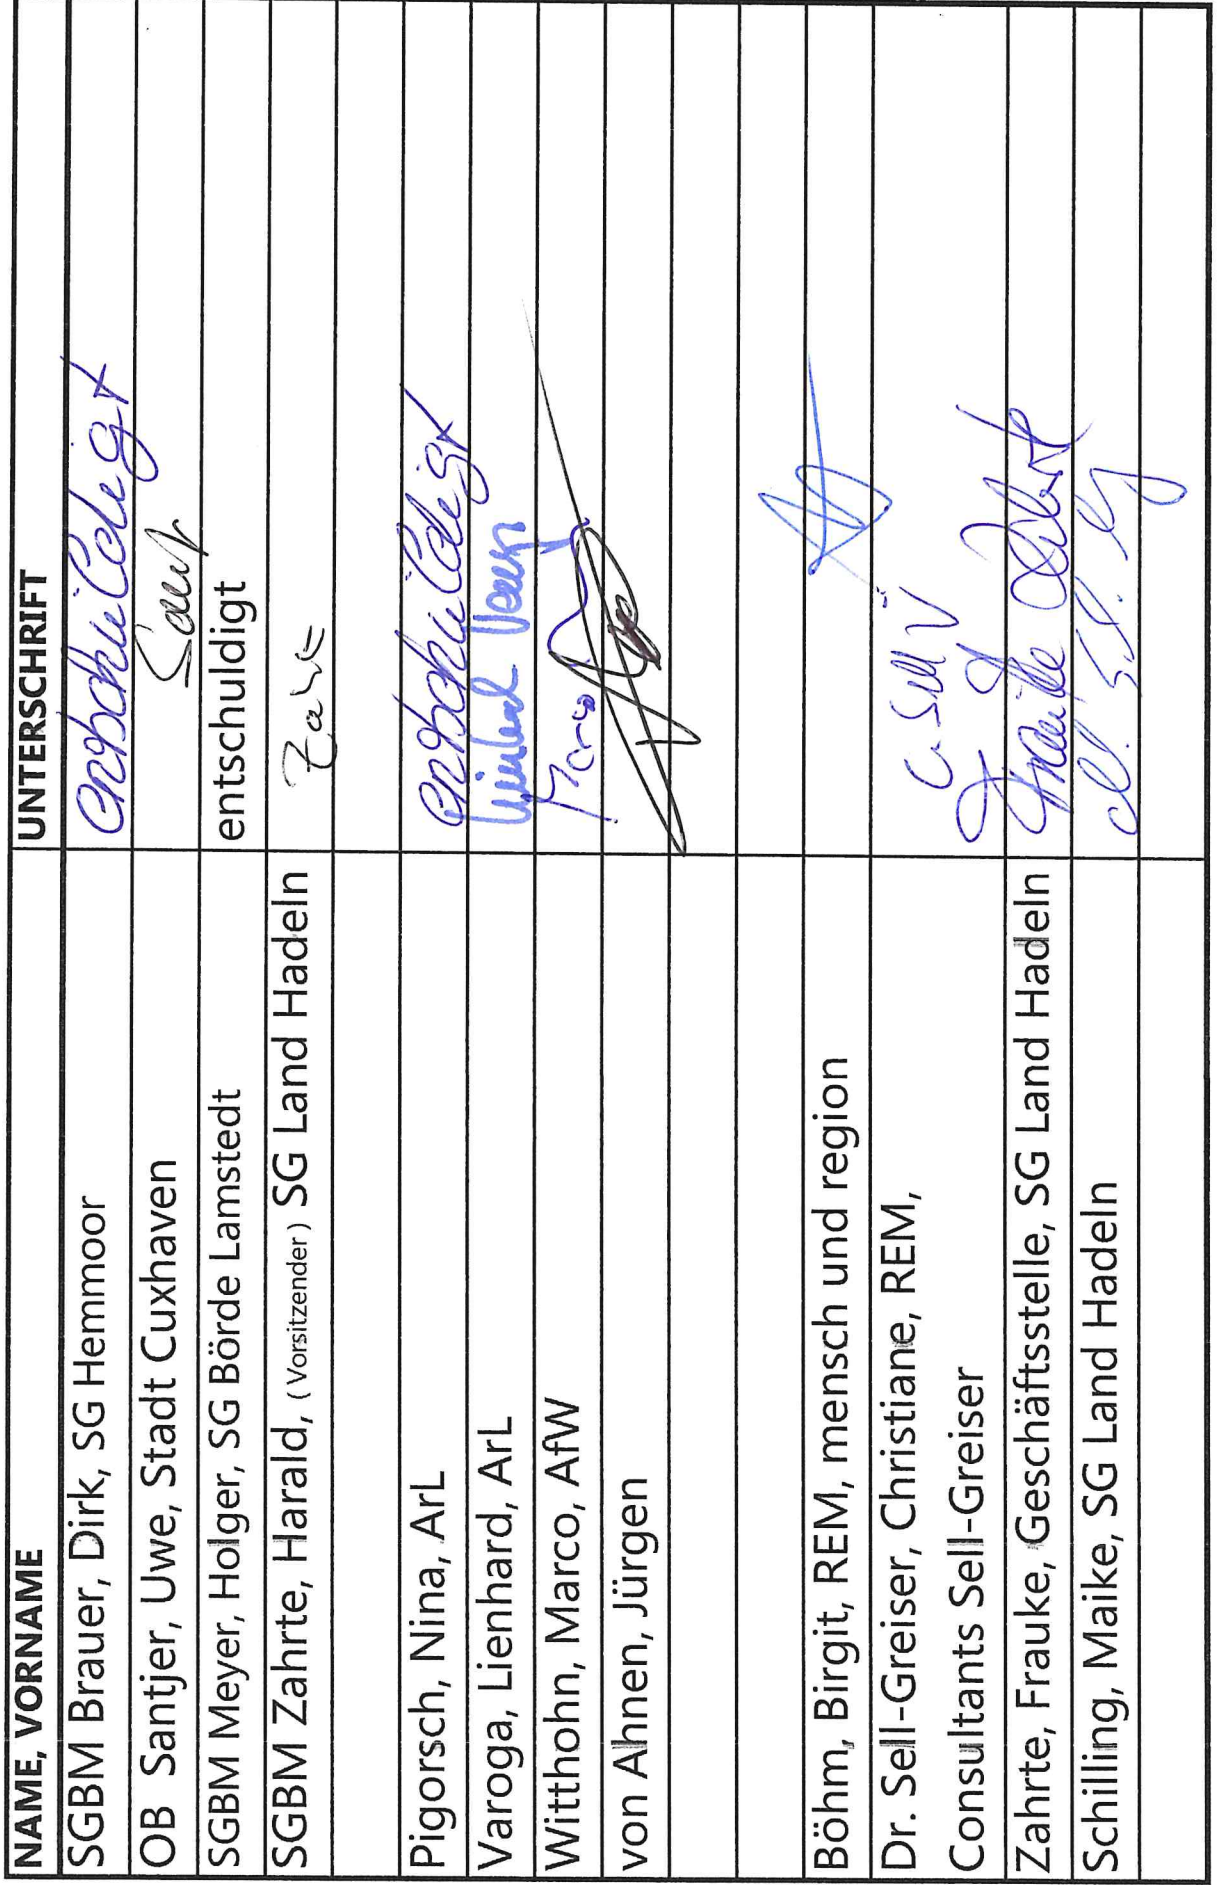 NAME, VORNAME UNTERSCHRIFT
SGBM Brauer, Dirk, SG Hemmoor entschuldigt
OB Santjer, Uwe, Stadt Cuxhaven
SGBM Meyer, Holger, SG Börde Lamstedt entschuldigt
SGBM Zahrte, Harald, (Vorsitzender) SG Land Hadeln
Pigorsch, Nina, ArL entschuldigt
Varoga, Lienhard, ArL
Witthohn, Marco, AfW Marco
von Ahnen, Jürgen
Böhm, Birgit, REM, mensch und region
Dr. Sell-Greiser, Christiane, REM, C. Sell
Consultants Sell-Greiser
Zahrte, Frauke, Geschäftsstelle, SG Land Hadeln Frauke
Schilling, Maike, SG Land Hadeln